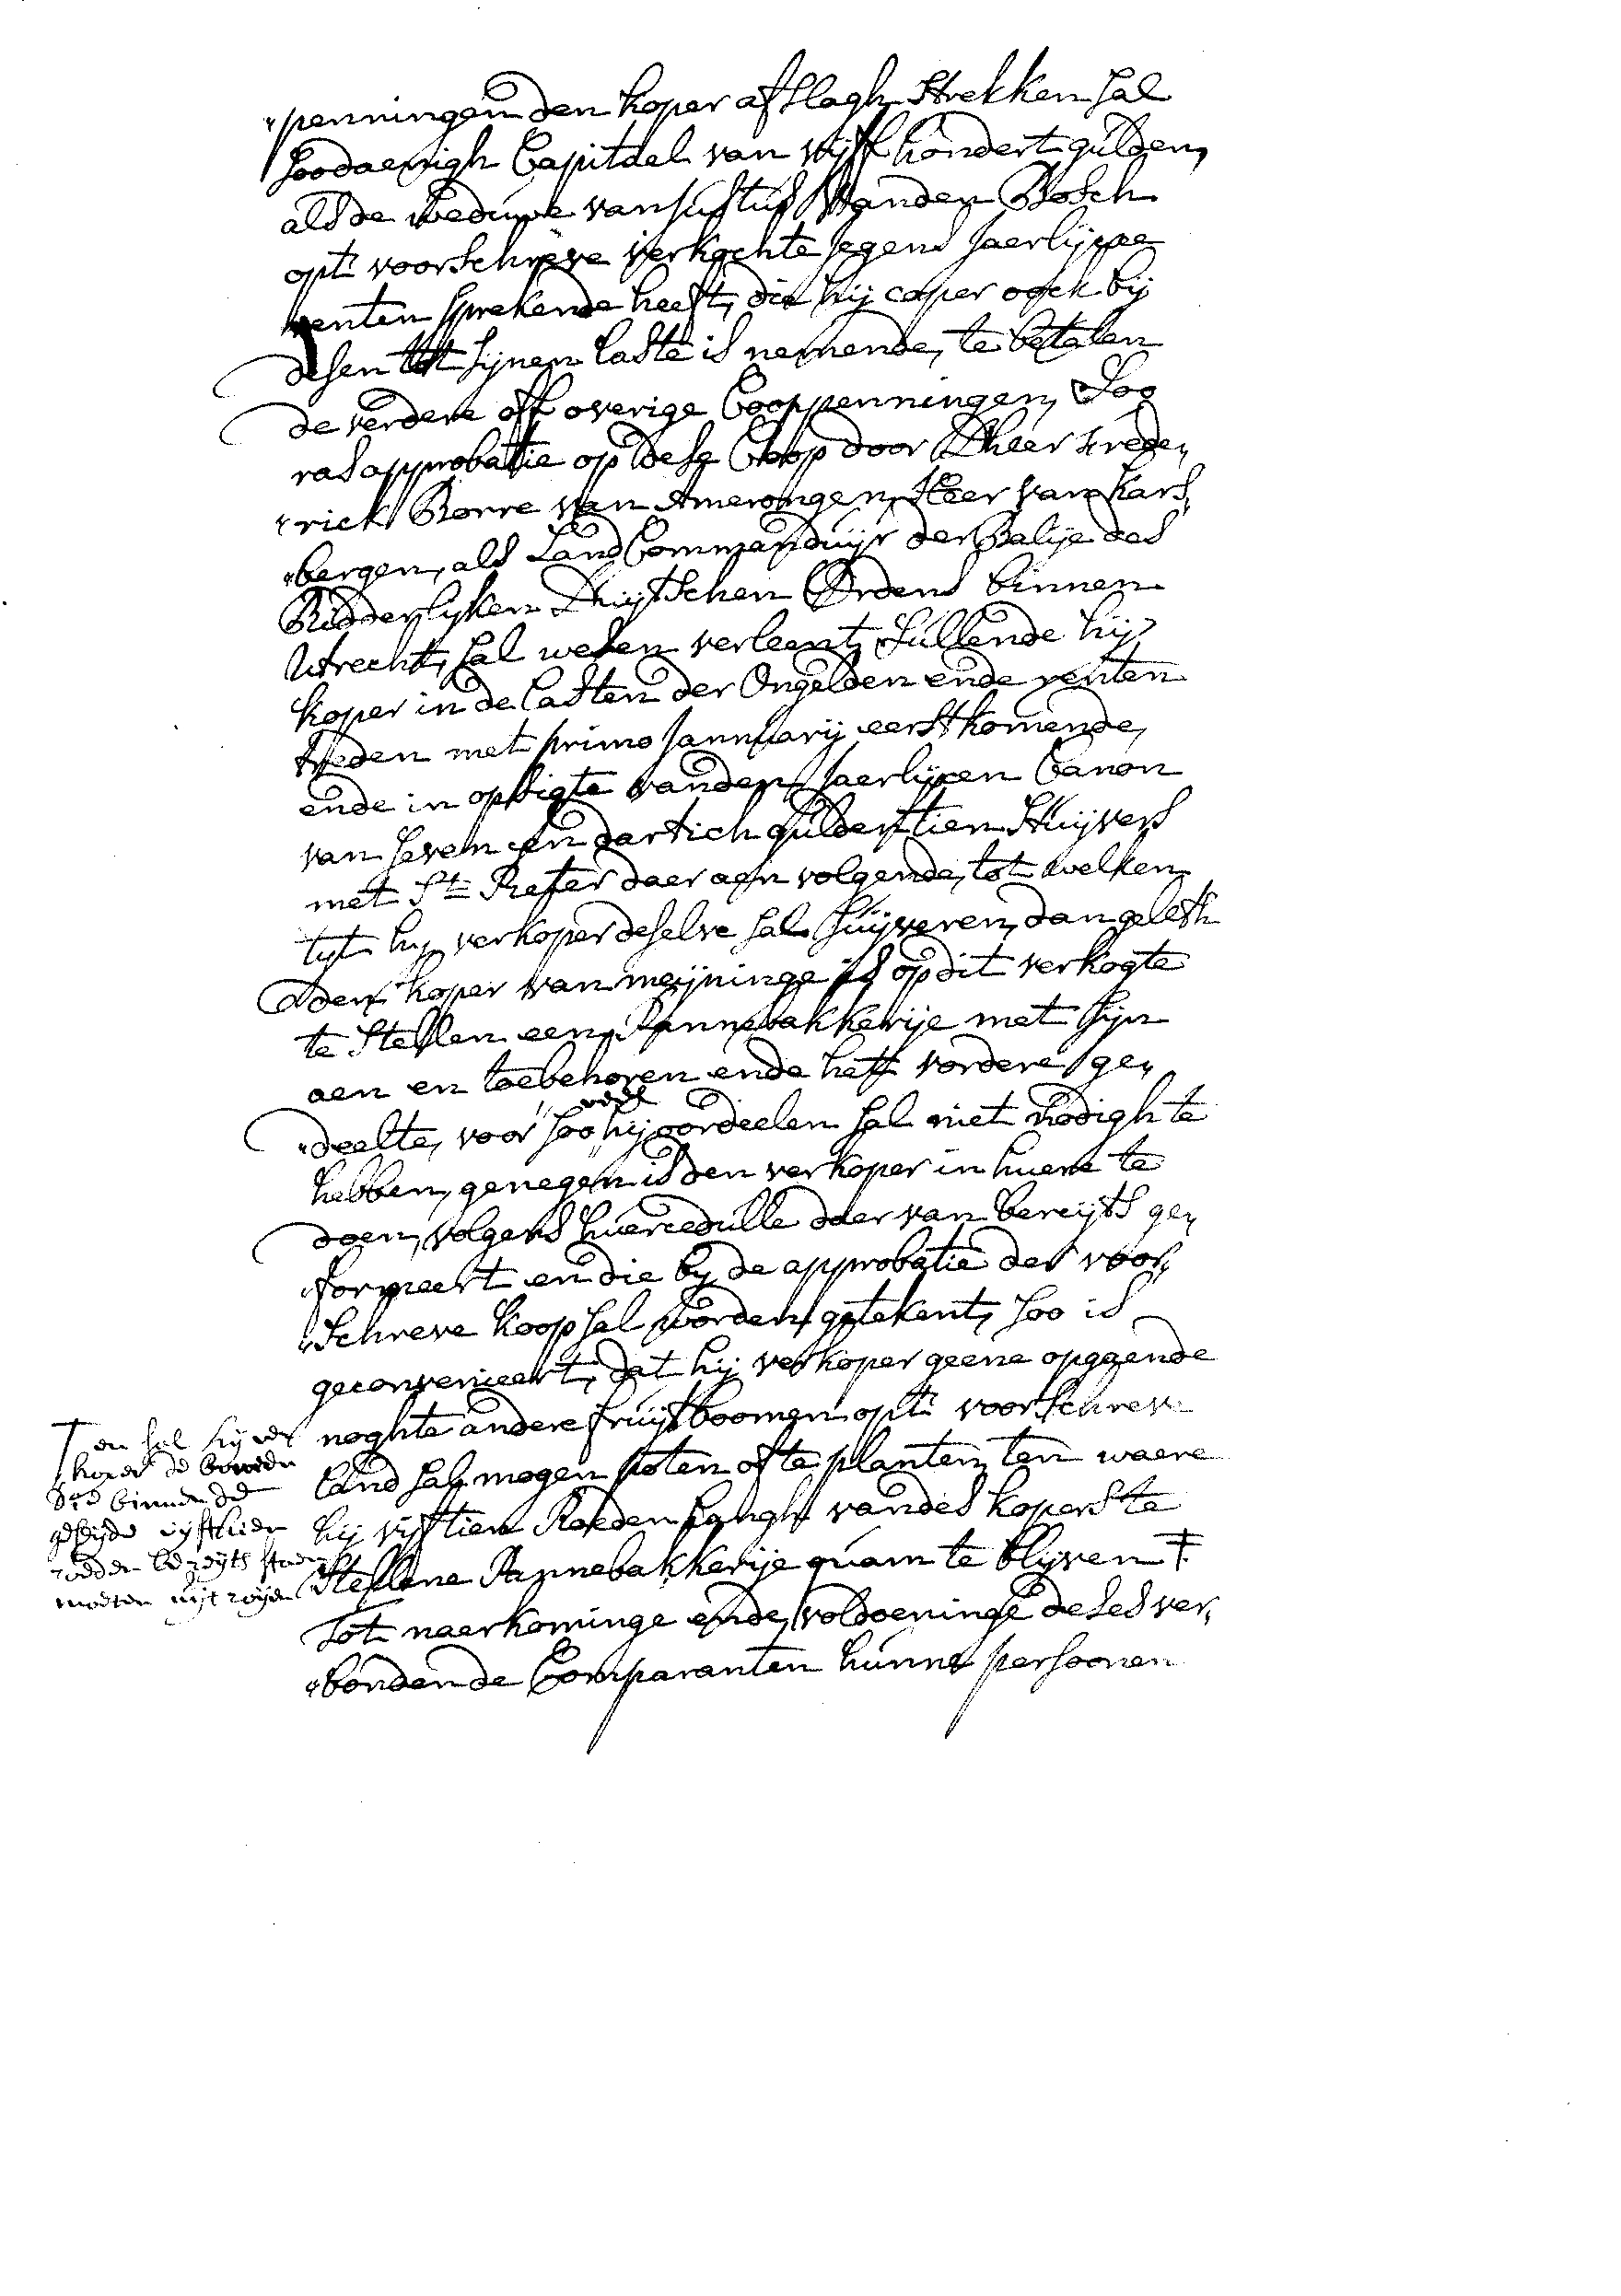 „penningen den koper afslagh strekken sal
soodaenigh Capitael van vijff hondert gulden,
als de weduwe van Justus vanden Bosch
opt voorschreve verkochte jegens jaerlijxe
renten sprekende heeft, die hij coper oock bij
desen tot sijnen laste is nemende, te betalen
de verdere off overige Cooppenningen, Soo
ras approbatie op dese Coop door Dheer Frede„
„rick Borre van Amerongen, Heer van Kars„
„bergen, als Land Commanduijr der Balije des
Ridderlyken Duijtschen Ordens binnen
Utrecht, sal wesen verleent, Sullende hij
koper in de lasten der Ongelden ende renten
treden met primo Jannuarij eerstkomende,
ende in opsigte vanden jaerlijxen Canon
van seven en dartich gulden tien stuijvers
met St. Pieter daer aen volgende, tot welken
tyt hy verkoper deselve sal suijveren, dan gelet
den koper van meijninge is op dit verkogte
te stellen een Pannebakkerije met sijn
aen en toebehoren ende het vordere ge„
„deelte, voor soo veel hij oordeelen sal niet nodigh te
hebben, genegen is den verkoper in huere te
doen, volgens huercedulle daer van bereijts ge„
formeert en die by de approbatie der voor„
„schreve koop sal worden getekent, soo is
geconvenieert, dat hij verkoper geene opgaende
noghte andere fruijtboomen opt voorschreve
land sal mogen poten ofte planten, ten waere
hij vijftien Roeden langh van des kopers te
stellene Pannebakkerije quam te blijven ‡
Tot naerkominge ende voldoeninge deses ver„
„bonden de Comparanten hunne persoonen
‡ en sal hij ver
koper de bomen
die binnen de
geseijde vijfthien
roeden bereyts staen
moeten uijt roijen